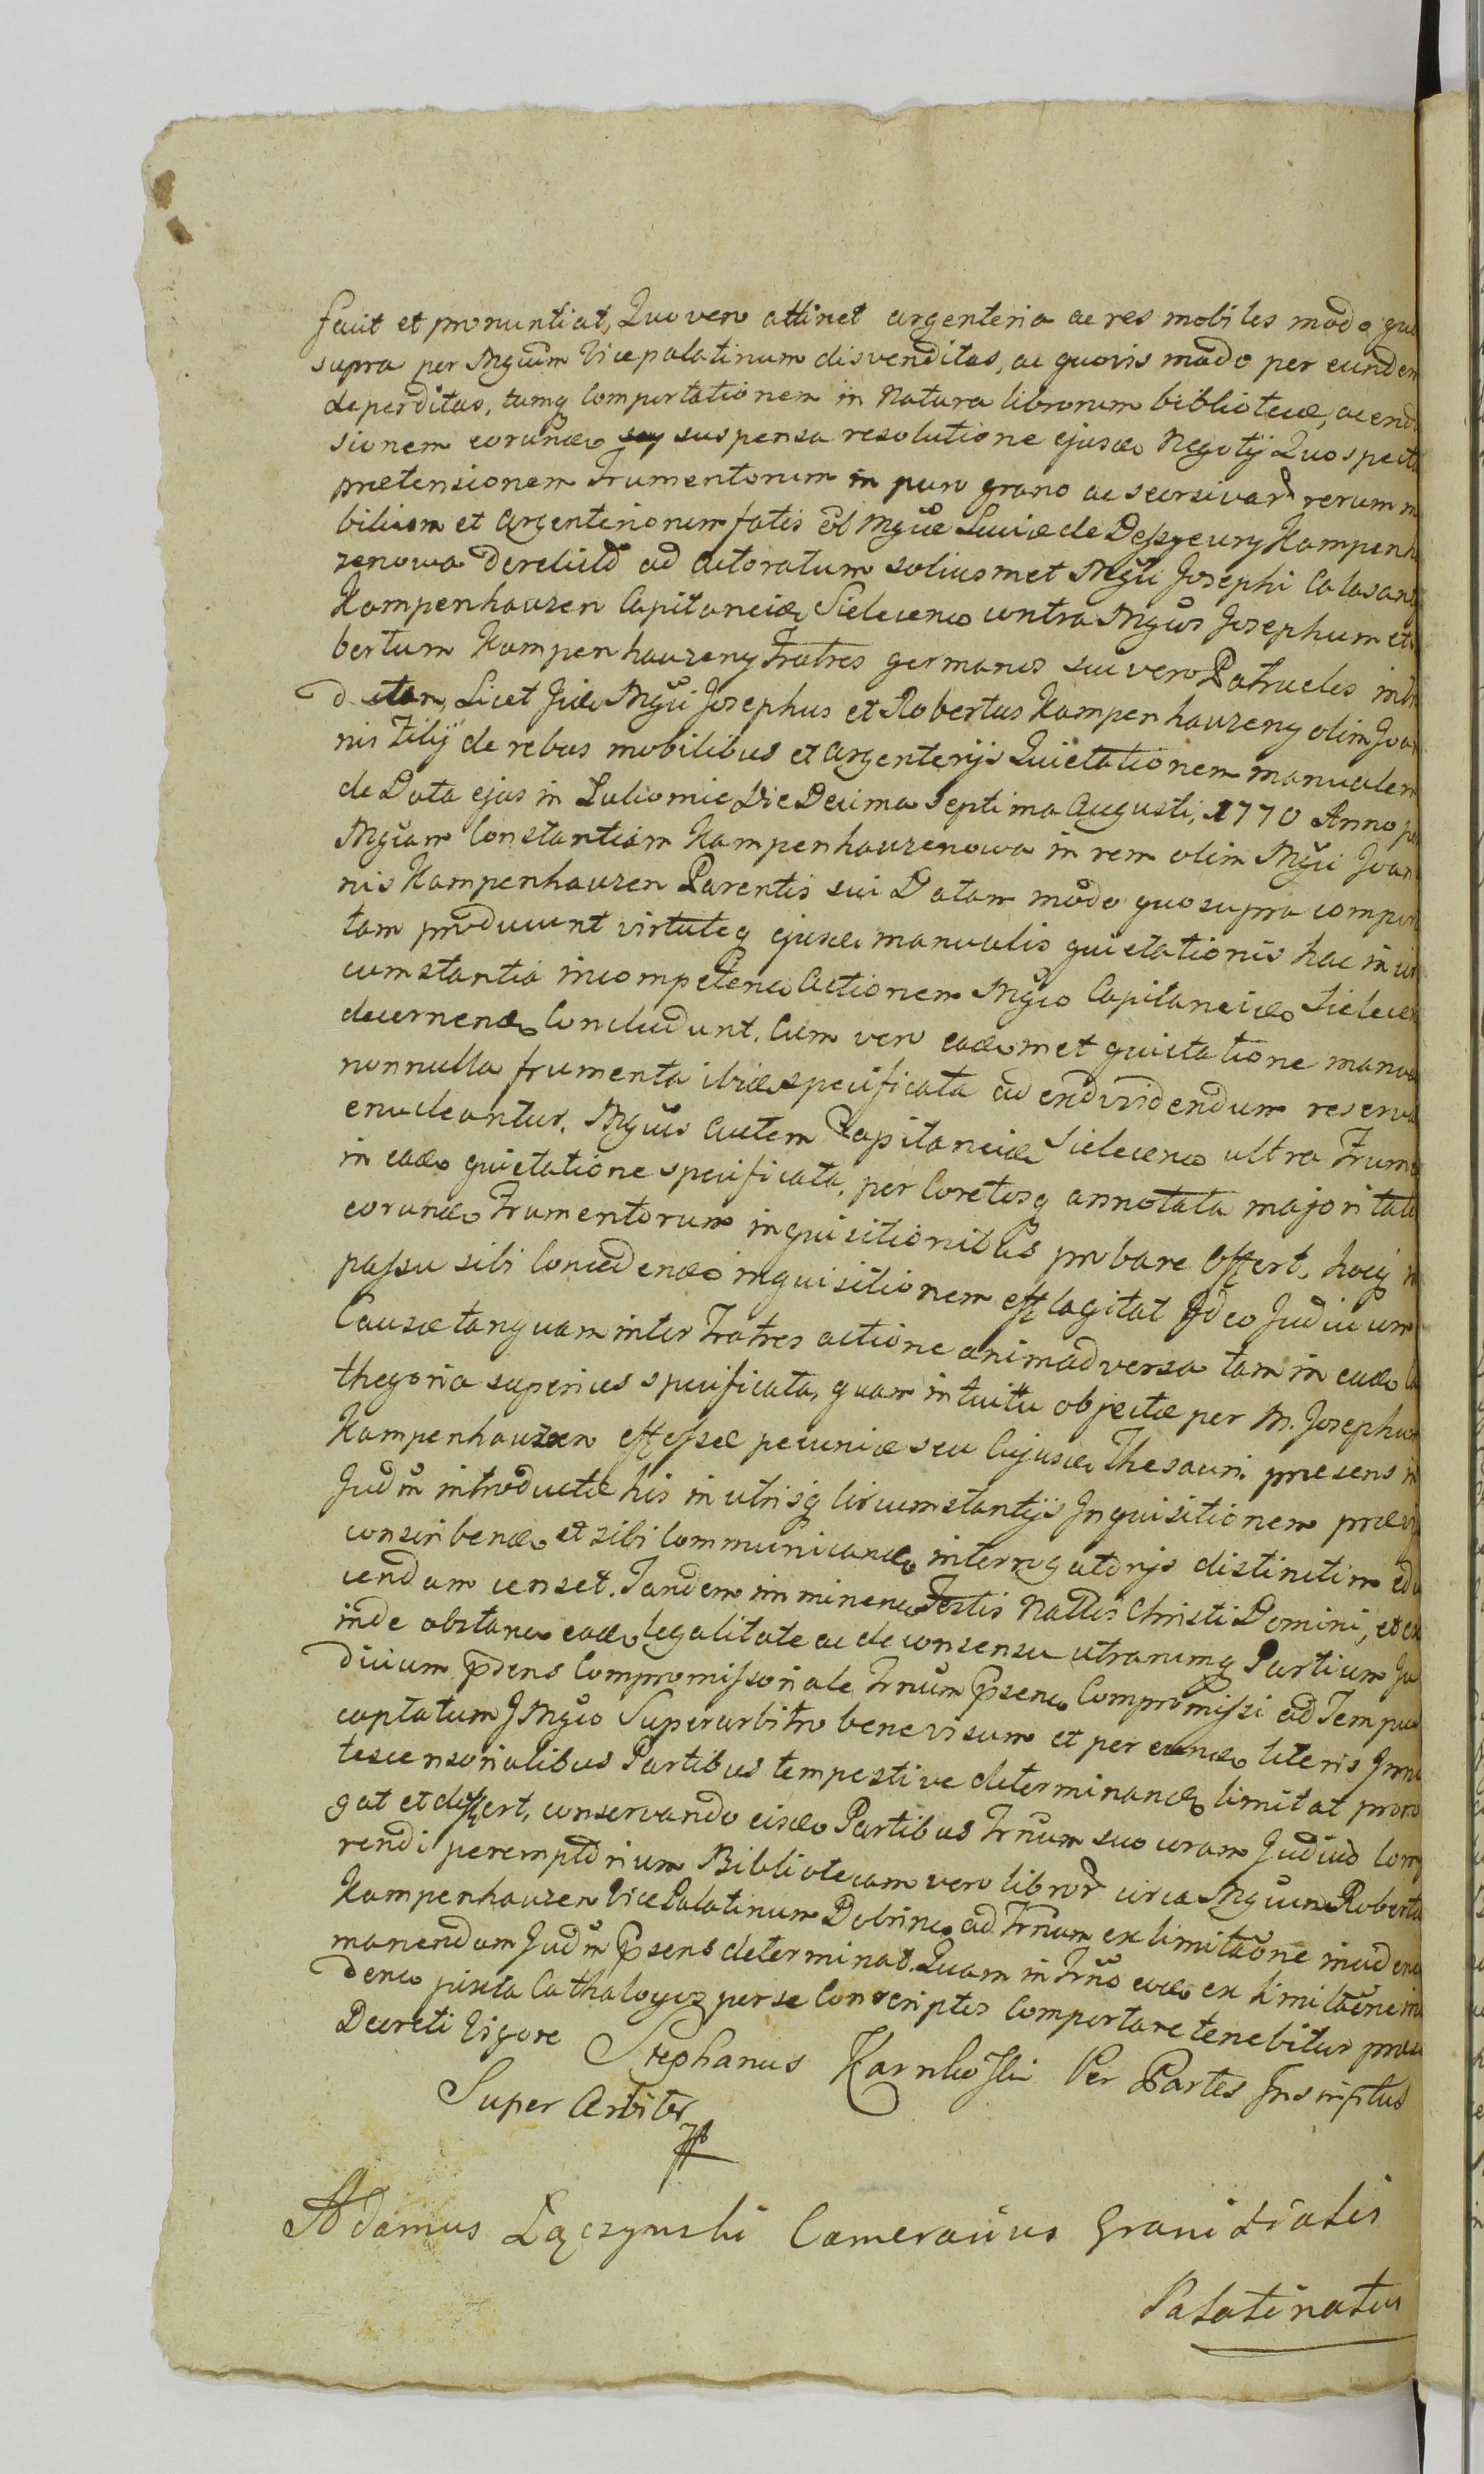 facit et pronuntiat, Quo vero attinet argenteria ac res mobiles modo quo
supra per Mgcum Vicepalatinum disvenditas, ac quovis modo per eundem
deperditas, tumq comportationem in Natura librorum biblioteca, ac endi
sionem eorundo suspensa resolutione ejusdo Negotij Quo specta
pretensionem Frumentorum in puro grano ac seorsivard rerum m
bilium et argenteriorum fatis ol Mgcæ Luciæ de Kampenh
zenowa derelict ad actoratum soliusmet Mgci Josephi Calasant
Kampenhauzen Capitaneidæ Sielecens contra Mgcos Josephum et
bertum Kampenhauzeny Fratres germanos sui vero Patrueles intr
d ctam, Licet Jidæ Mgci Josephus et Robertus Kampenhauzeny olim Joan
nis Filij de rebus mobilibus et argenterijs Quietationem manualem
de Data ejus in Lutomie Die Decima Septima Augusti, 1770 Anno pe
Mgcam Constantiam Kampenhauzenowa in rem olim Mgci Joan
nis Kampenhauzen Parentis sui Datam modo quo supra compor
tam producunt virtuteq ejusdæ manualis quietationis hac in cir
cumstantia incompetenc actionem Mgco Capitaneidæ Sielecen
decernendo Concludunt. Cum vero eademet quietatione manua
nonnulla frumenta ibidæ specificata ad endividendum reserva
enucleantur. Mgcus autem Capitaneidæ Sielecens ultra Frume
in eadæ quietatione specificata, per Coretosq annotata majoritate
eorundo Frumentorum inquisitionibus probare offert, hocq in
passu sibi concedendo inquisitionem efflagitat Ideo Judicium
Causæ tanquam inter Fratres actione animadversa tam in eadæ Ca
thegoria superius specificata, quam intuitu objectæ per M. Josephum
Kampenhauzen effossæ pecuniæ seu cujusdæ Thesauri presens in
Judm introductæ his in utrisq circumstantijs Inquisitionem prævijs
conscribendo et sibi Communicando interrogatorijs distinctim edu
cendam censet. Tandem imminenc Festis Nattis Christi Domini, et ex
inde obstanc eadæ legalitate ac de consensu utrarumq Partium Ju
dicium pdens Compromissoriale Trnum psenc Compromissi ad Tempus
captatum J Mgco Superarbitro benevisum et per eundo literis Inno
tescensorialibus Partibus tempestive determinando limitat proro
gat et differt, conservando eisdo Partibus Trnum suo coram Judicio Comp
rendi peremptorium Bibliotecam vero libror circa Mgcum Robertu
Kampenhauzen Vice Palatinum Dobrinc ad Trnum ex limitaone inciden
manendam Judm psens determinat. Quam in Trno eodo ex limitaone in
denc juxta Cathalogos per se Conscriptos Comportare tenebitur præs
Decreti Vigore
Stephanus Karnkoski Per Partes Inscriptus
Super Arbiter
Adamus Łączynski Camerarius Granitialis
Palatinatus